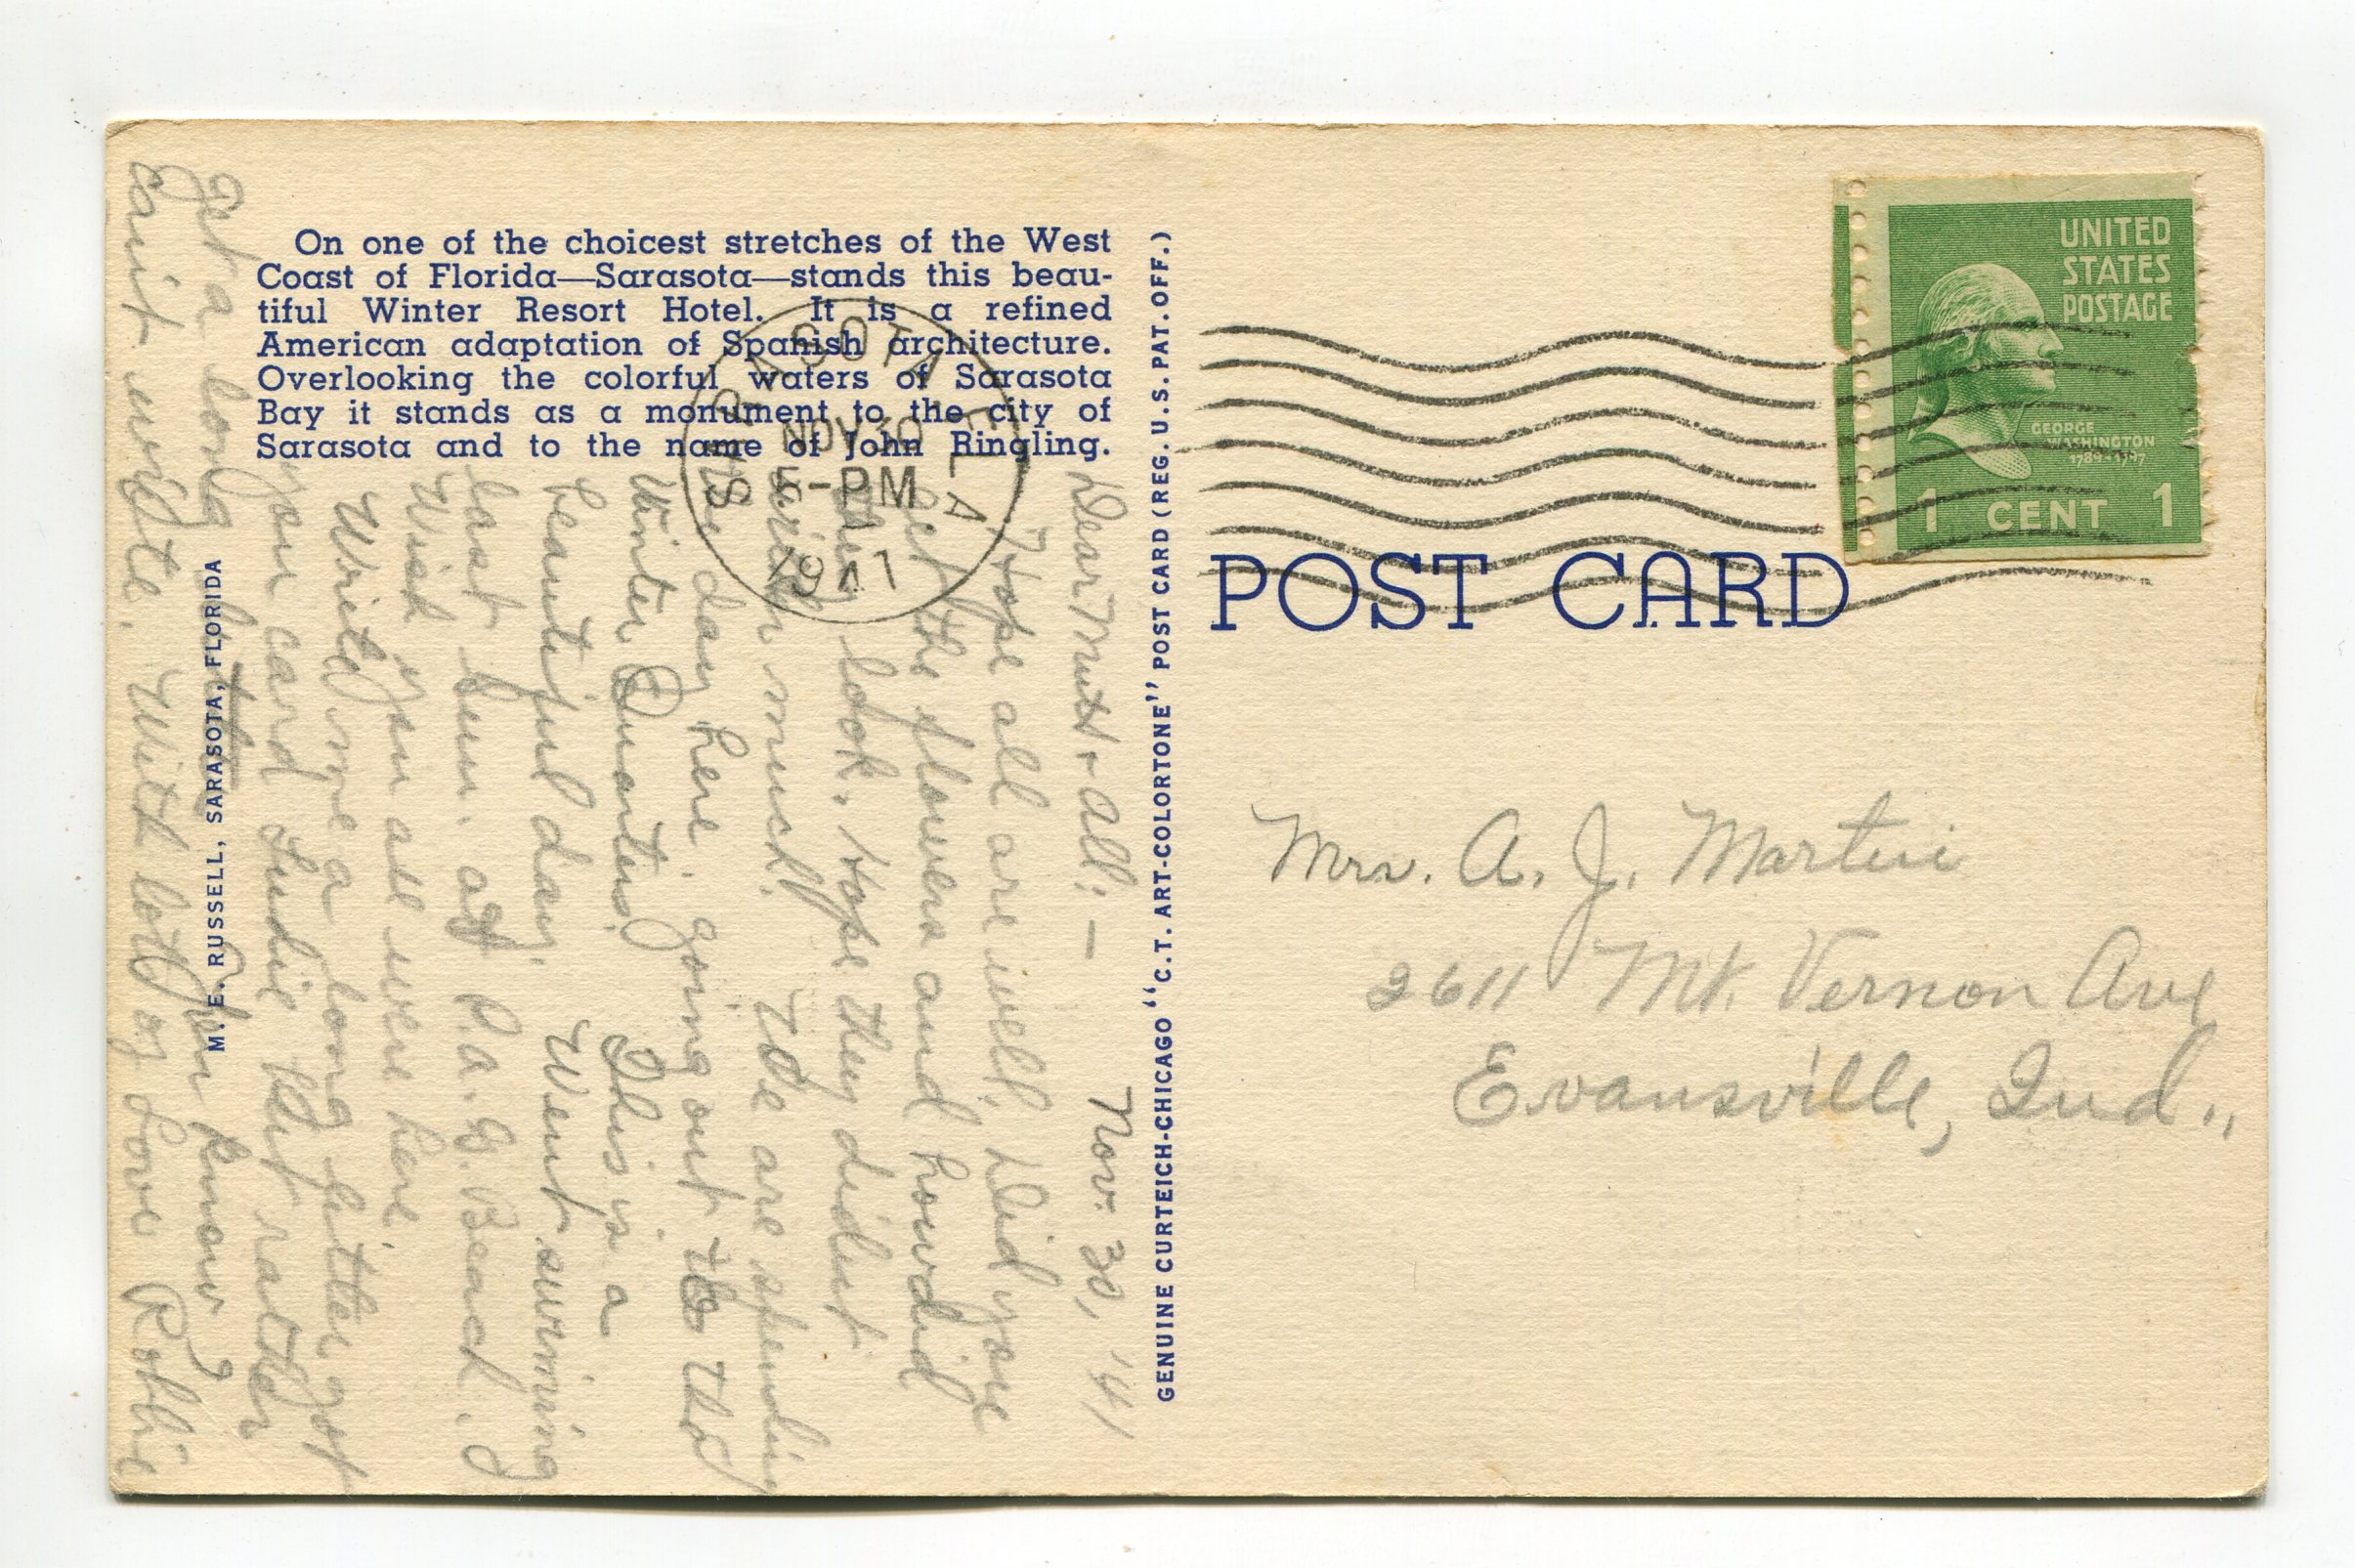 On one of the choicest stretches of the West
Coast of Florida—Sarasota—stands this beau-
tiful Winter Resort Hotel. It is a refined
American adaptation of Spanish architecture.
Overlooking the colorful waters of Sarasota
Bay it stands as a monument to the city of
Sarasota and to the name of John Ringling.
SARASOTA FLA
NOV 30
5-PM
1941
UNITED
STATES
POSTAGE
GEORGE
WASHINGTON
1789-1797
1 CENT 1
POST CARD
GENUINE CURTEICH-CHICAGO "C.T. ART-COLORTONE" POST CARD (REG. U.S. PAT. OFF.)
M. E. RUSSELL, SARASOTA, FLORIDA
Mrs. A. J. Martin
2611 Mt. Vernon Ave
Evansville, Ind.,
Nov. 30, '41
Dear Mutt & all: —
Hope all are well, Did you
get the flowers and how did
they look. Hope they didn't
much. We are spending
the day here. going out to the
Winter Quarters. This is a
beautiful day. Went swimming
last Sun. at Pa. G. Beach. I
Wish you all were here
Write me a long letter got
your card Sudie but rather
get a long letter, you know
can't write. With lots of Love Robbie